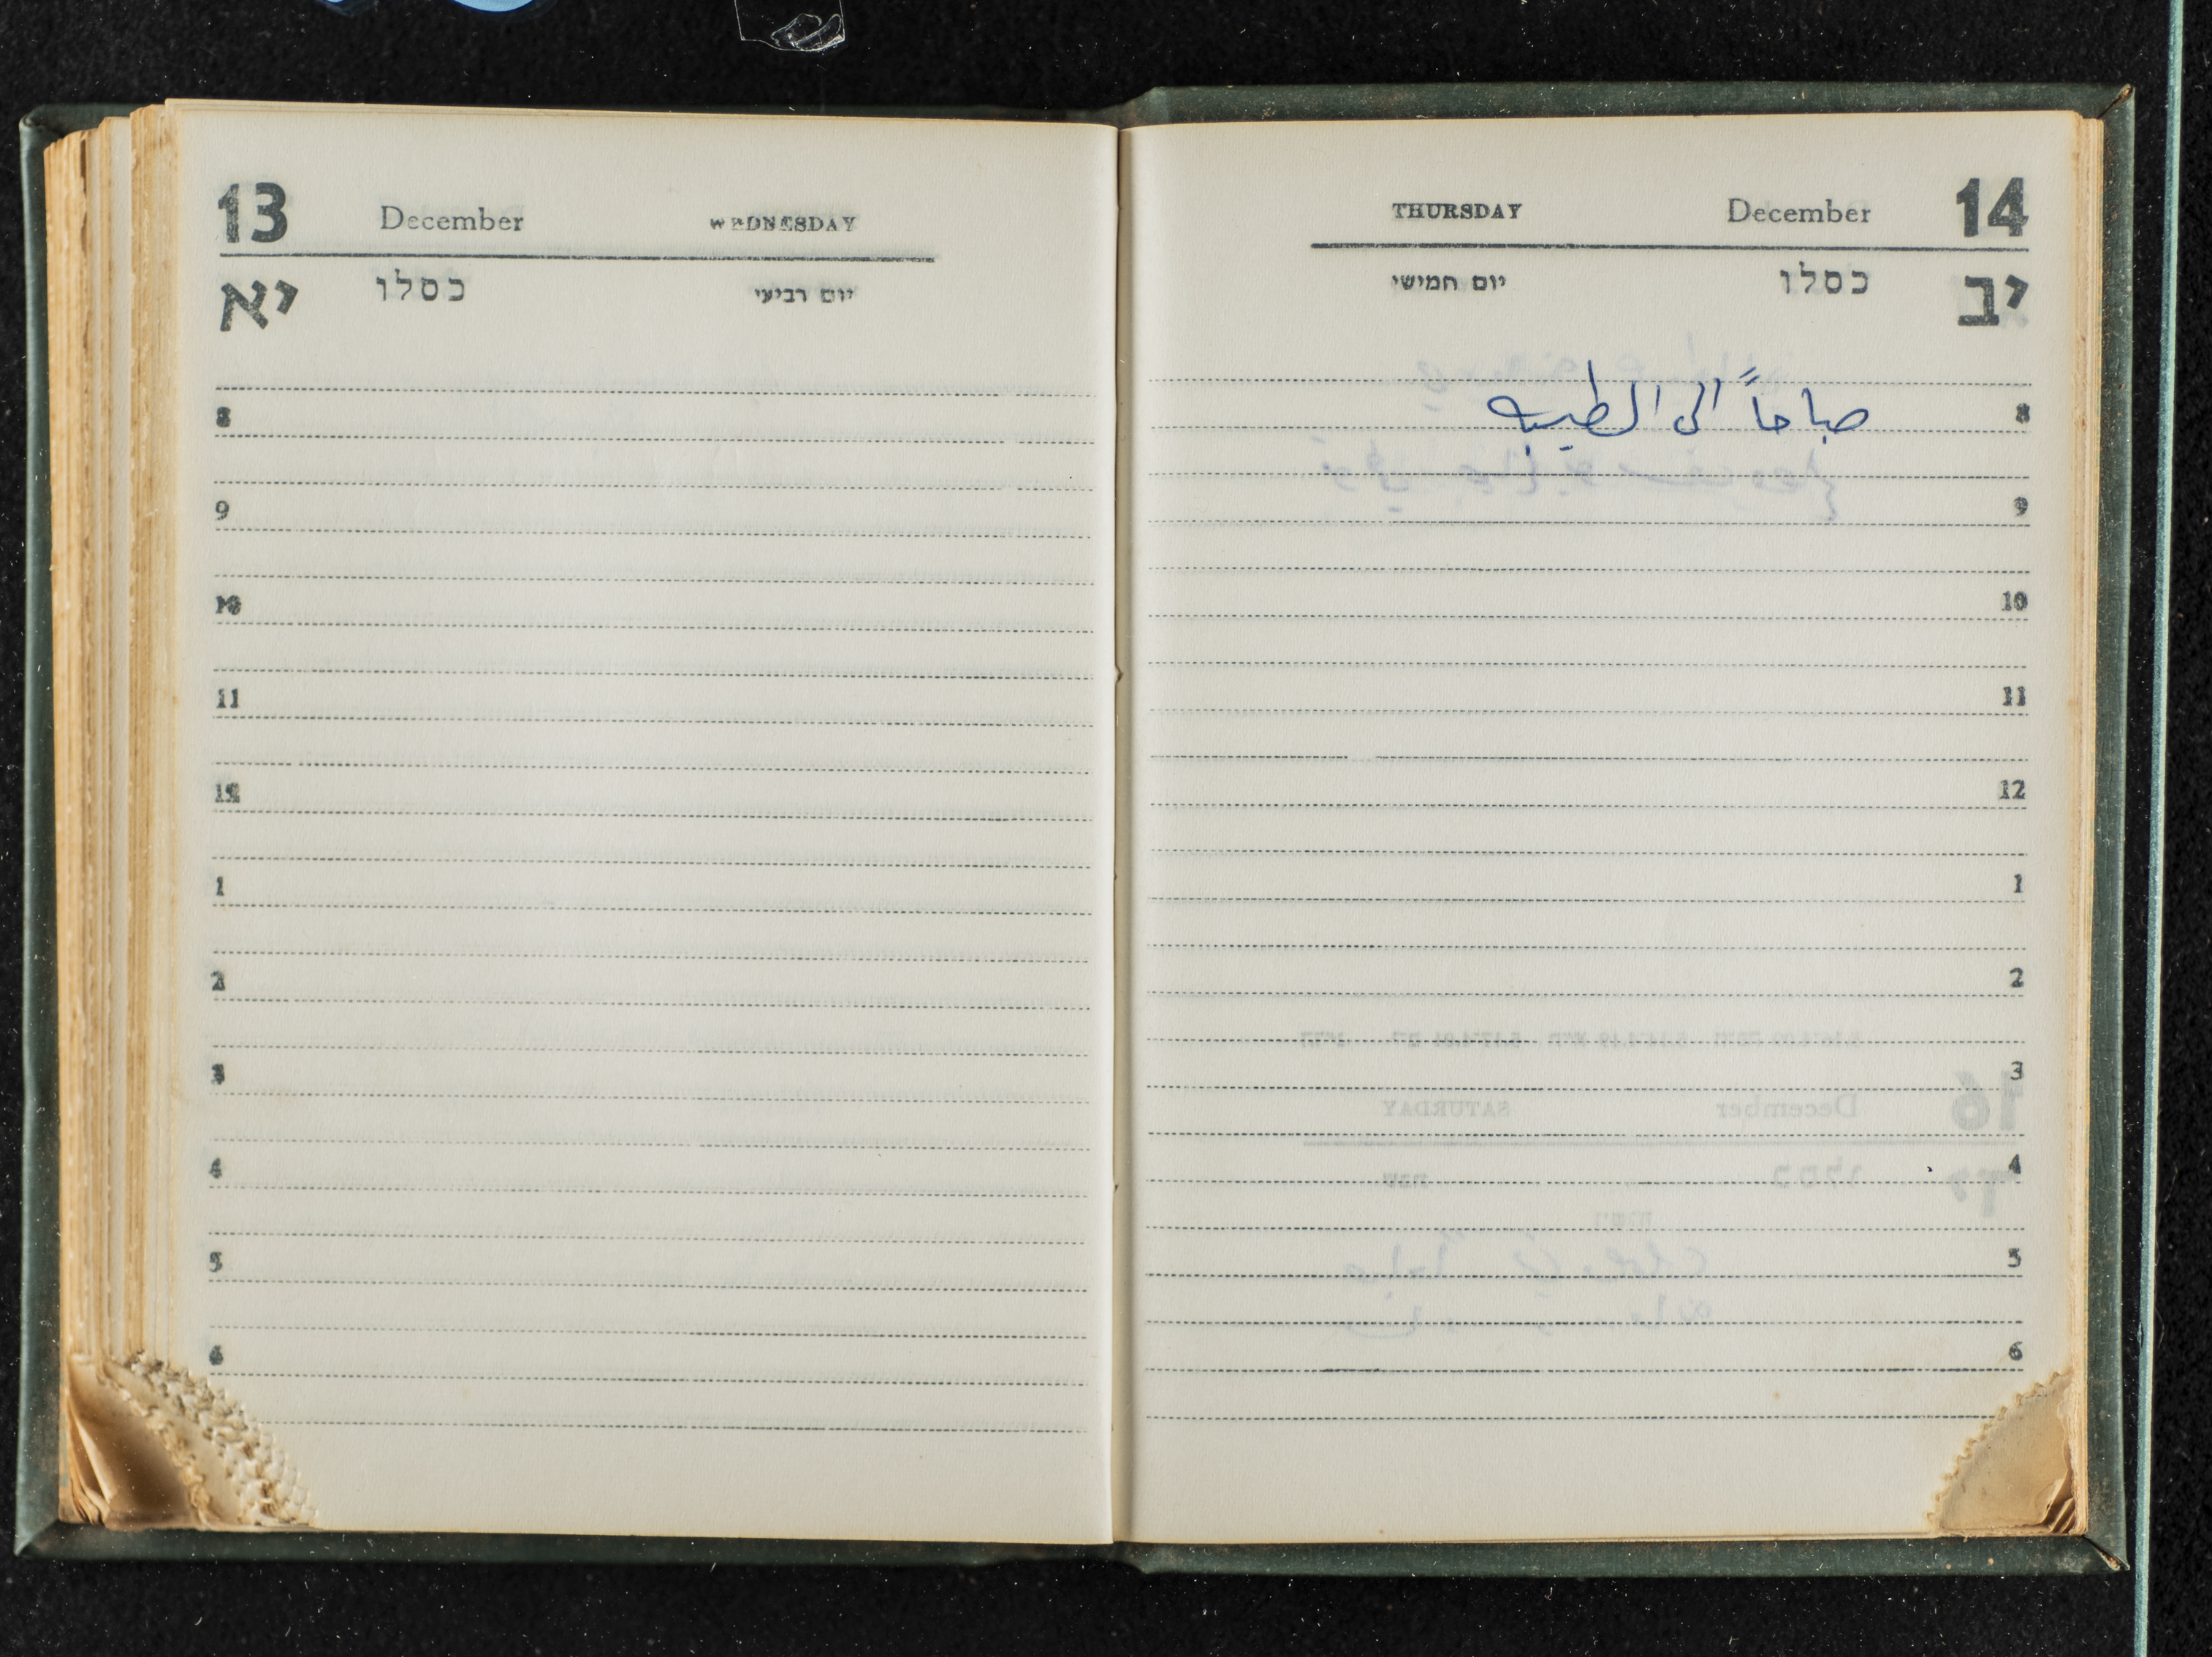 13 December WEDNESDAY
יא כסלו יום רביעי
8
9
10
11
12
1
2
3
4
5
6
THURSDAY December 14
יום חמישי כסלו יב
صباحاً الى الطيبه
8
9
10
11
12
1
2
3
4
5
6